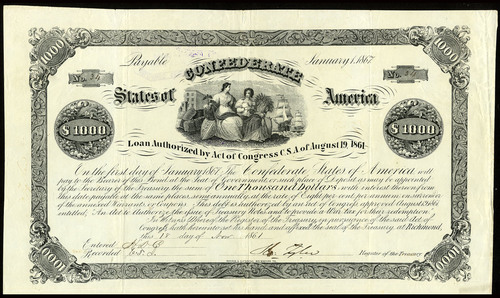 1000 1000
Payable January 1, 1867
CONFEDERATE
No. No.
States of America
$1000 $1000
Loan Authorized by Act of Congress C.S.A. of August 19, 1861
On the first day of January 1867 The Confederate States of America will
pay to the Bearer of this Bond at the Seat of Government or such place of Deposit as may be appointed
by the Secretary of the Treasury, the sum of One Thousand Dollars, with interest thereon from
this date payable at the same places, semi annually, at the rate of Eight per cent per annum on surrender
of the annexed Warrants or Coupons. This debt is authorized by an Act of Congress approved August 19, 1861
entitled, "An Act to Authorize the Issue of Treasury Notes and to provide a War tax for their redemption.
In Witness Whereof The Register of the Treasury, in pursuance of the said Act of
Congress, hath hereunto set his hand, and affixed the seal of the Treasury at Richmond,
this day of Nov 1861
Entered
Recorded Register of the Treasury
1000 1000